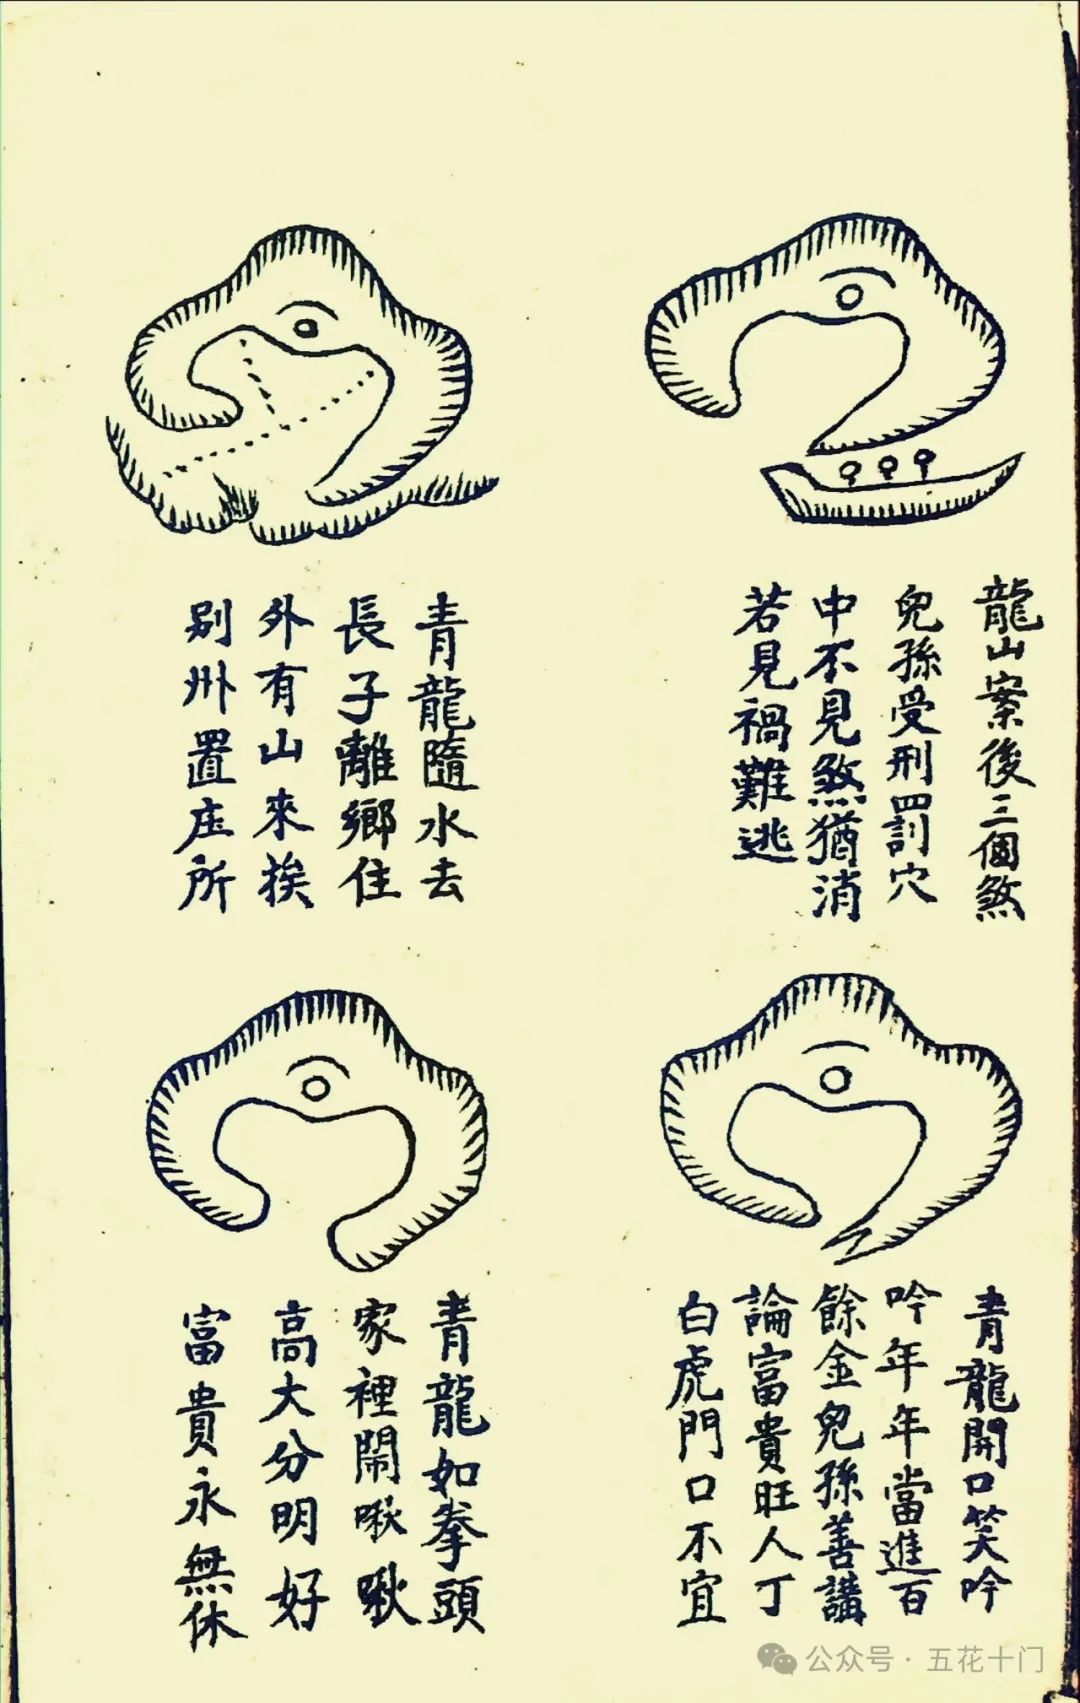 龍山案後三個煞
兒孫受刑罰穴
中不見煞猶消
若見禍難逃
青龍隨水去
長子離鄉住
外有山來挨
别州置庄所
青龍開口笑吟
吟年年當進百
餘金兒孫善講
論富貴旺人丁
白虎門口不宜
青龍如拳頭
家裡鬧啾啾
高大分明好
富貴永無休
公众号·五花十门